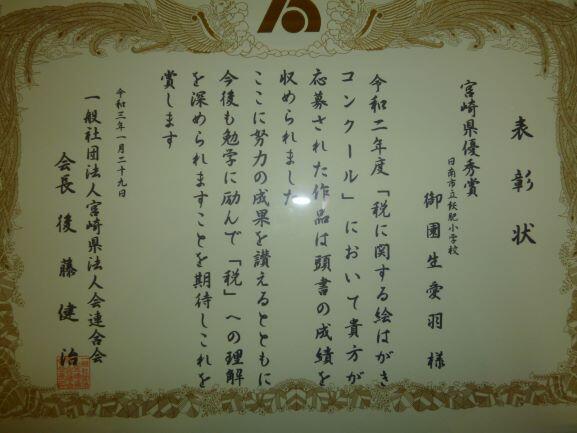 表彰状
宮崎県優秀賞
日南市立飫肥小学校
御園生愛羽様
令和二年度「税に関する絵はがき
コンクール」において貴方が
応募された作品は頭書の成績を
収められました
ここに努力の成果を讃えるとともに
今後も勉学に励んで「税」への理解
を深められますことを期待しこれを
賞します
令和三年一月二十九日
一般社団法人宮崎県法人会連合会
会長後藤健治